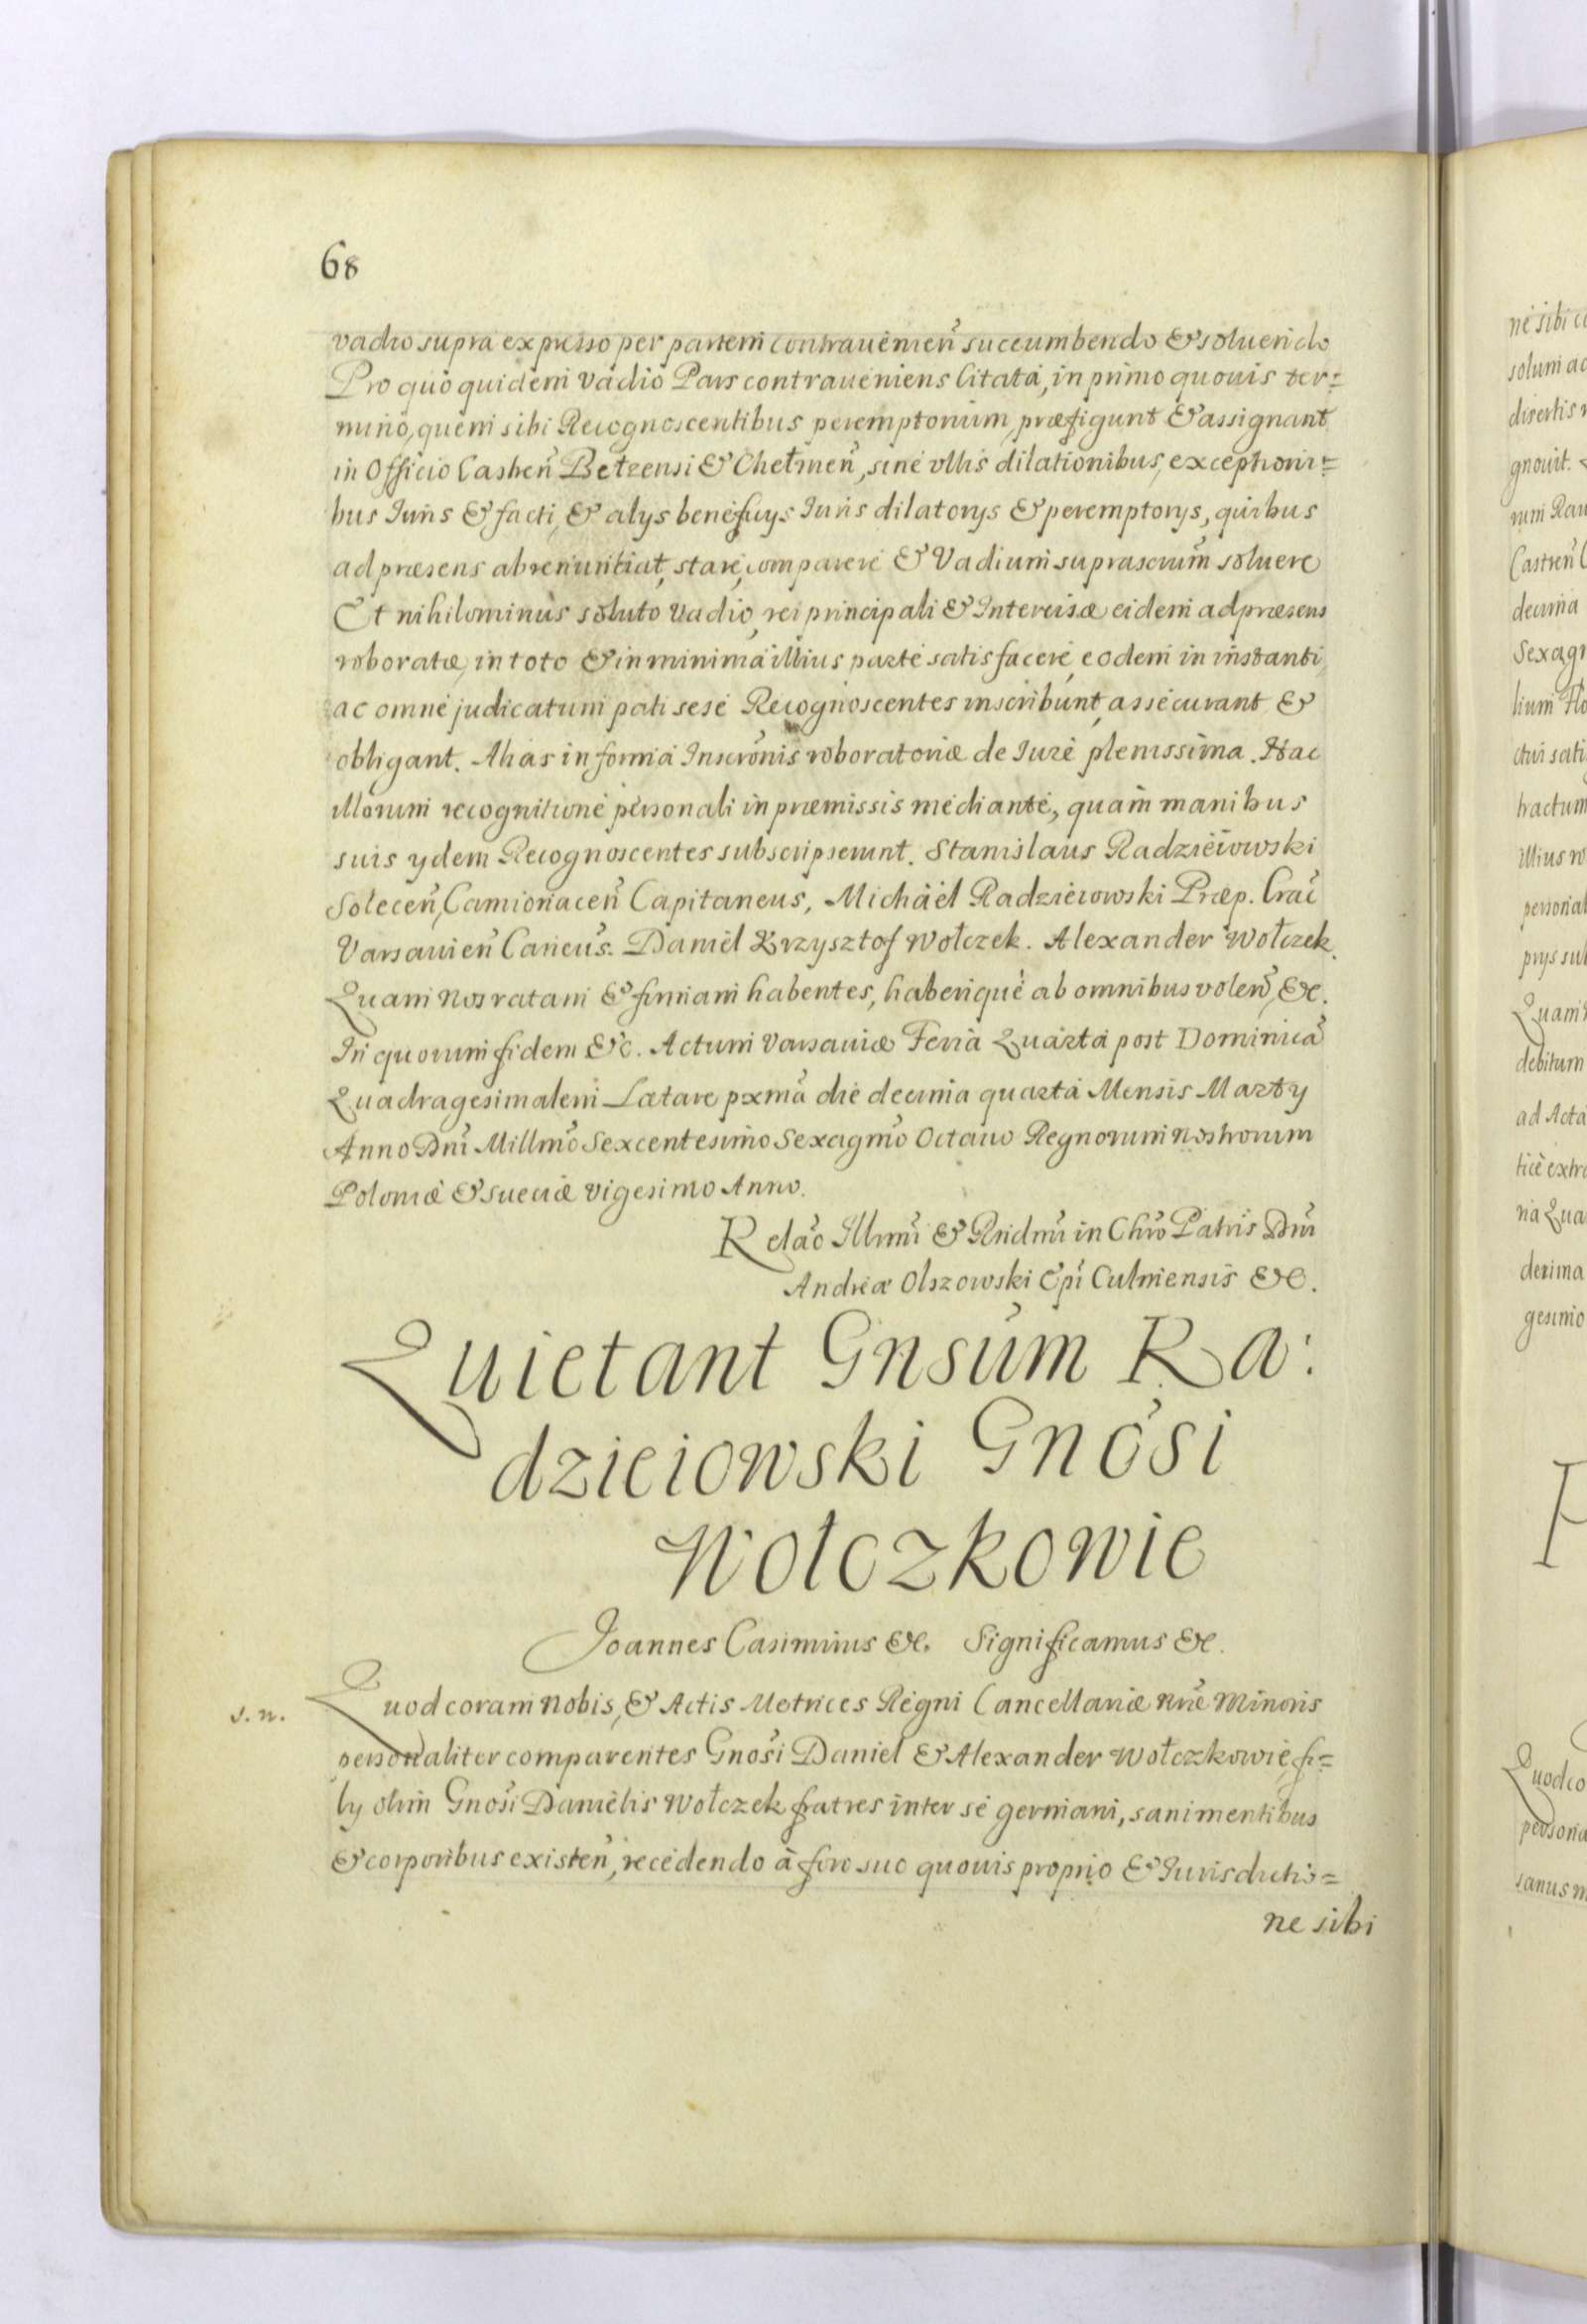 68
vadio supra expresso per partem contravenien̄ succumbendo & soluendo
Pro quo quidem vadio Pars contraueniens Citata, in primo quouis ter=
mino, quem sibi Recognoscentibus peremptorium, præfigunt & assignant
in Officio Castren̄ Bełzensi & Chełmen̄, sine vllis dilationibus, exceptioni=
bus Iuris & facti, & alys beneficys Iuris dilatorys & peremptorys, quibus
ad præsens abrenuntiat, stare, comparere & Vadium suprascrūm soluere
Et nihilominùs soluto vadio, rei principali & Intercisæ eidem ad præsens
roboratæ, in toto & in minima illius parte satisfacere, eodem in instanti,
ac omne judicatum pati sese Recognoscentes inscribunt, assecurant &
obligant. Alias in forma Inscrōnis roboratoriæ de Iure plenissima. Hac
illorum recognitione personali in præmissis mediante, quam manibus
suis ydem Recognoscentes subscripserunt. Stanislaus Radzieiowski
Solecen̄, Camionacen̄ Capitaneus, Michaël Radzieiowski Præp. Crac̄
Varsauien̄ Cancus̄. Daniel Krzysztof Wołczek. Alexander Wołczek.
Quam Nos ratam & firmam habentes, haberique ab omnibus volen̄, &c.
In quorum fidem &c. Actum Varsauiæ Feria Quarta post Dominicā
Quadragesimalem Lætare pxmā die decima quarta Mensis Marty
Anno Dnī Millmō Sexcentesimo Sexagmō Octauo Regnorum nostrorum
Poloniæ & Sueciæ vigesimo Anno.
Relāo Illmī & Rndmī in Chrō Patris Dnī
Andreæ Olszowski Epī Culmensis &c.
Quietant Gnsūm Ra:
dzieiowski Gnōsi
Wołczkowie
Joannes Casimirus &c. Significamus &c.
s. n.
Quod coram Nobis, & Actis Metrices Regni Cancellariæ nrē Minoris
personaliter comparentes Gnosī Daniel & Alexander Wołczkowie, fi=
ly olim Gnosī Danielis Wołczek fratres inter se germani, sani mentibus
& corporibus existen̄, recedendo à foro suo quouis proprio & Iurisdictio=
ne sibi